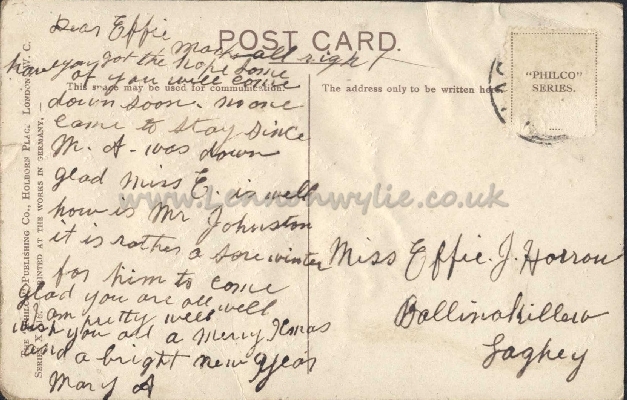 Dear Effie
POST CARD.
have you got the Macks all right
I hope some
of you will come
This space may be used for communication.
The address only to be written here
down soon. no one
came to stay since
M. A. was down
glad Miss E. is well
how is Mr Johnston
it is rather a sore winter
for him to come
glad you are all well
I am pretty well
wish you all a Merry Xmas
and a bright new year
Mary A
"PHILCO"
SERIES.
Miss Effie. J. Horron
Ballinakillew
Laghey
THE PHILCO PUBLISHING CO., HOLBORN PLAC, LONDON, W. C.
PRINTED AT THE WORKS IN GERMANY.
www.Lennonwylie.co.uk